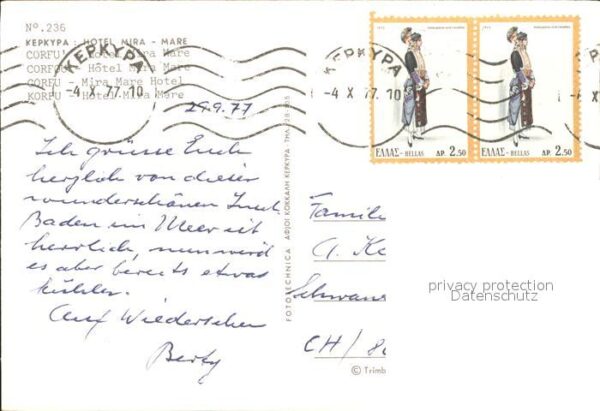 No.236
ΚΕΡΚΥΡΑ : HOTEL MIRA - MARE
CORFU : Hotel Mira Mare
CORFOU : Hôtel Mira Mare
CORFU - Mira Mare Hotel
KORFU - Hotel Mira Mare
ΚΕΡΚΥΡΑ
-4 X 77. 10
ΚΕΡΚΥΡΑ
-4 X 77. 10
ΕΛΛΑΣ-HELLAS ΔΡ. 2.50
ΕΛΛΑΣ-HELLAS ΔΡ. 2.50
29.9.77
Ich grüsse Euch
herzlich von dieser
wunderschönen Insel.
Baden im Meer ist
herrlich, nun wird
es aber bereits etwas
kühler.
Auf Wiedersehen
Berty
FOTOTECHNICA ΑΦ/ΟΙ ΚΟΚΚΑΛΗ ΚΕΡΚΥΡΑ ΤΗΛ.
Familie
A. Ke
Schwans
CH/ 80
privacy protection
Datenschutz
© Trimb